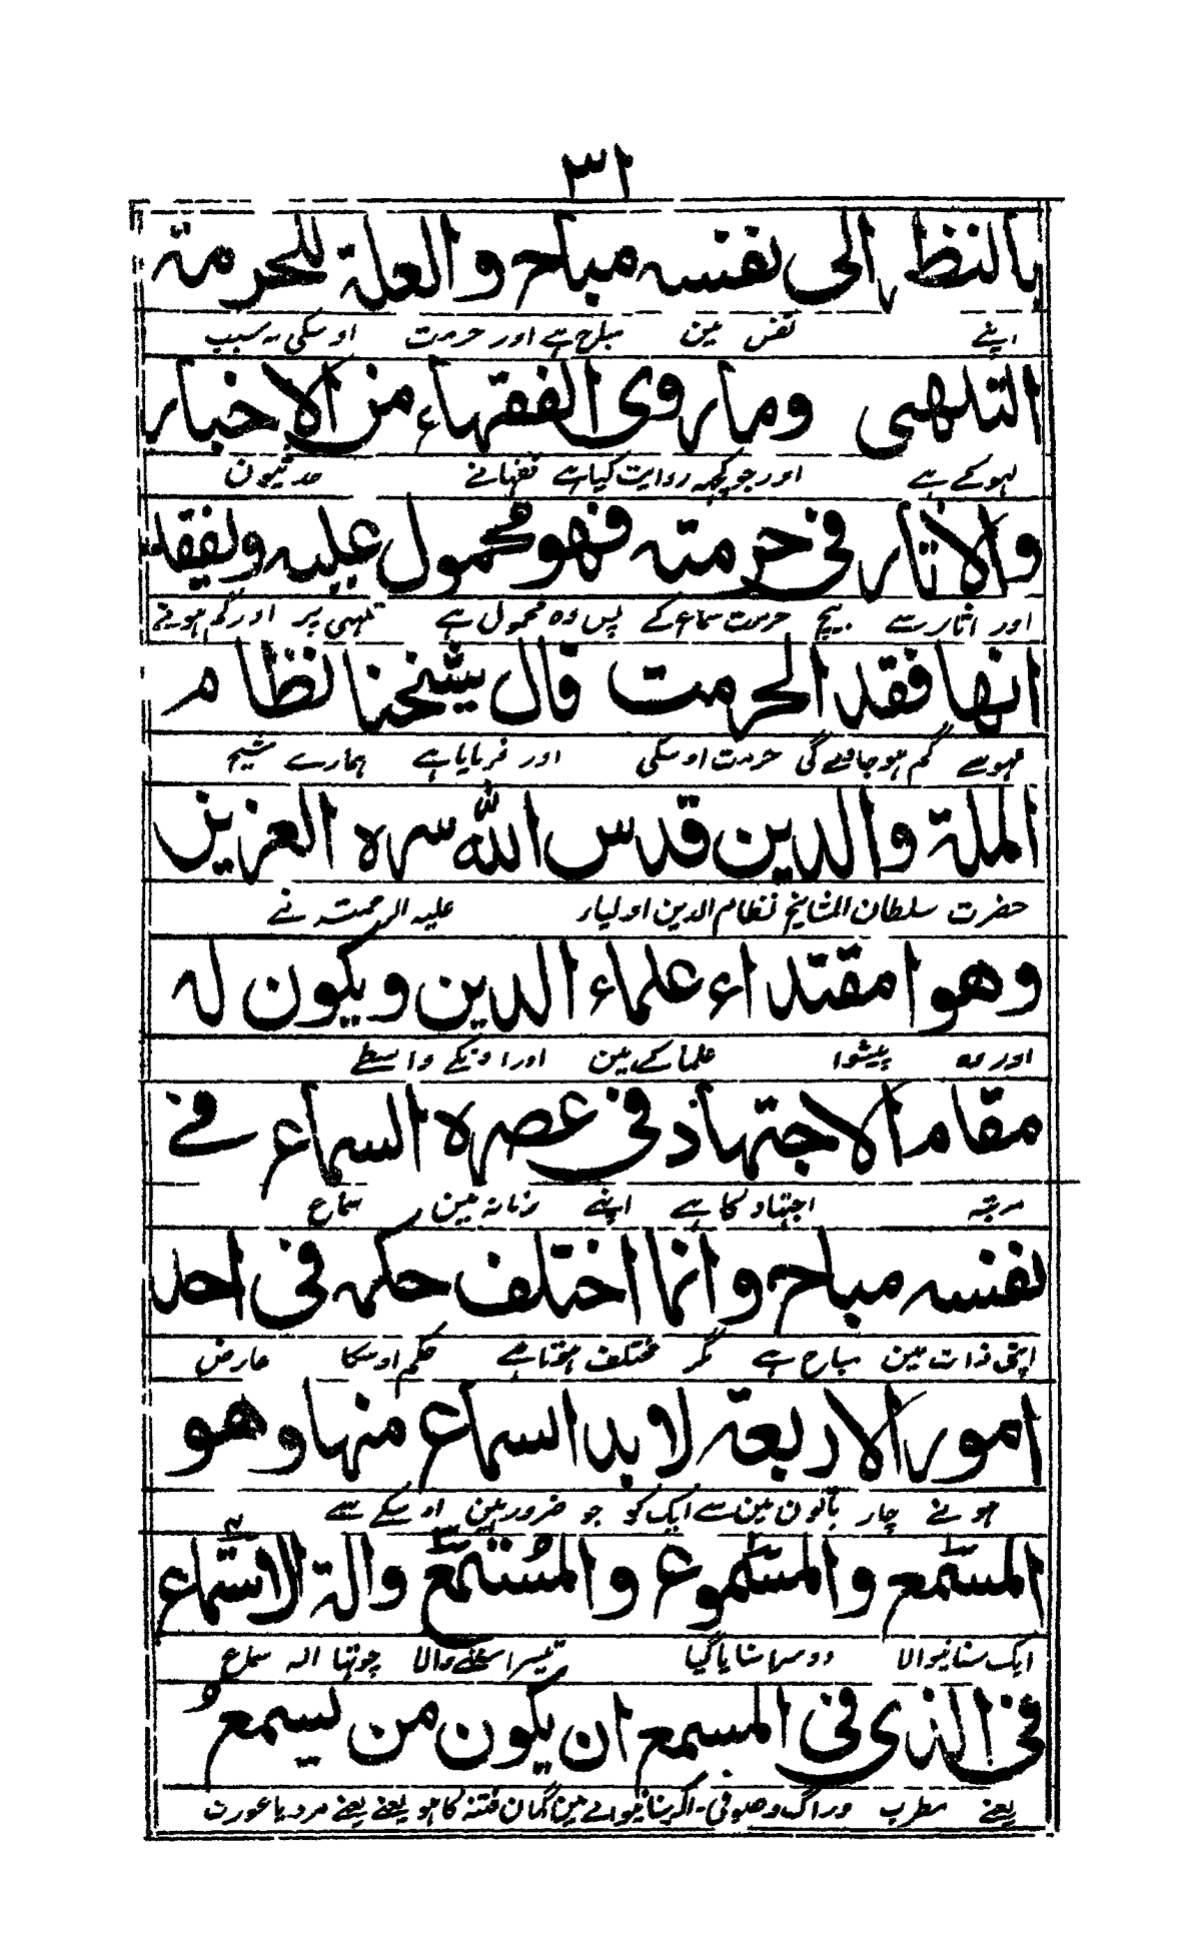 ٣١
بالنظر الى نفسه مباح والعلة للحرمة
اپنے نفس مین مباح ہے اور حرمت اوسکی بہ سبب
التلهی وما روی الفقهاء من الاخبار
لہو کے ہے اور جو کچہہ روایت کیا ہے فقہا نے حدیثون
والاثار فی حرمته فهو محمول علیه وبفقد
اور اثار سے بیچ حرمت سماع کے پس وہ محمول ہے تلہی پر اور گم ہونے
انها فقد الحرمت قال شیخنا نظام
گم ہو جاوے گی حرمت اوسکی اور فرمایا ہے ہمارے شیخ
الملة والدین قدس الله سره العزیز
حضرت سلطان المشایخ نظام الدین اولیاء علیہ الرحمتہ نے
وهوا مقتداء علماء الدین ویکون له
اور وہ پیشوا علما کے ہین اور اونکے واسطے
مقام الاجتهاد فی عصره السماع فے
مرتبہ اجتہاد کا ہے اپنے زمانہ مین سماع
نفسه مباح وانما اختلف حکمه فی احد
اپنی ذات مین مباح ہے مگر مختلف ہوتا ہے حکم اوسکا عارض
امور الاربعة لا بد السماع منها وهو
ہونے چار باتون مین سے ایک کو جو ضرور ہین اوسکے سے
المسمع والمسموع والمستمع والة الاسماع
ایک سنانیوالا دوسرا سنایا گیا تیسرا سننے والا چوتہا الہ سماع
فی الذی فی المسمع ان یکون من یسمع
یعنے مطرب وراگ وصوفی۔ اگر سنانیوالے مین گمان فتنہ کا ہو یعنے یعنے مرد یا عورت